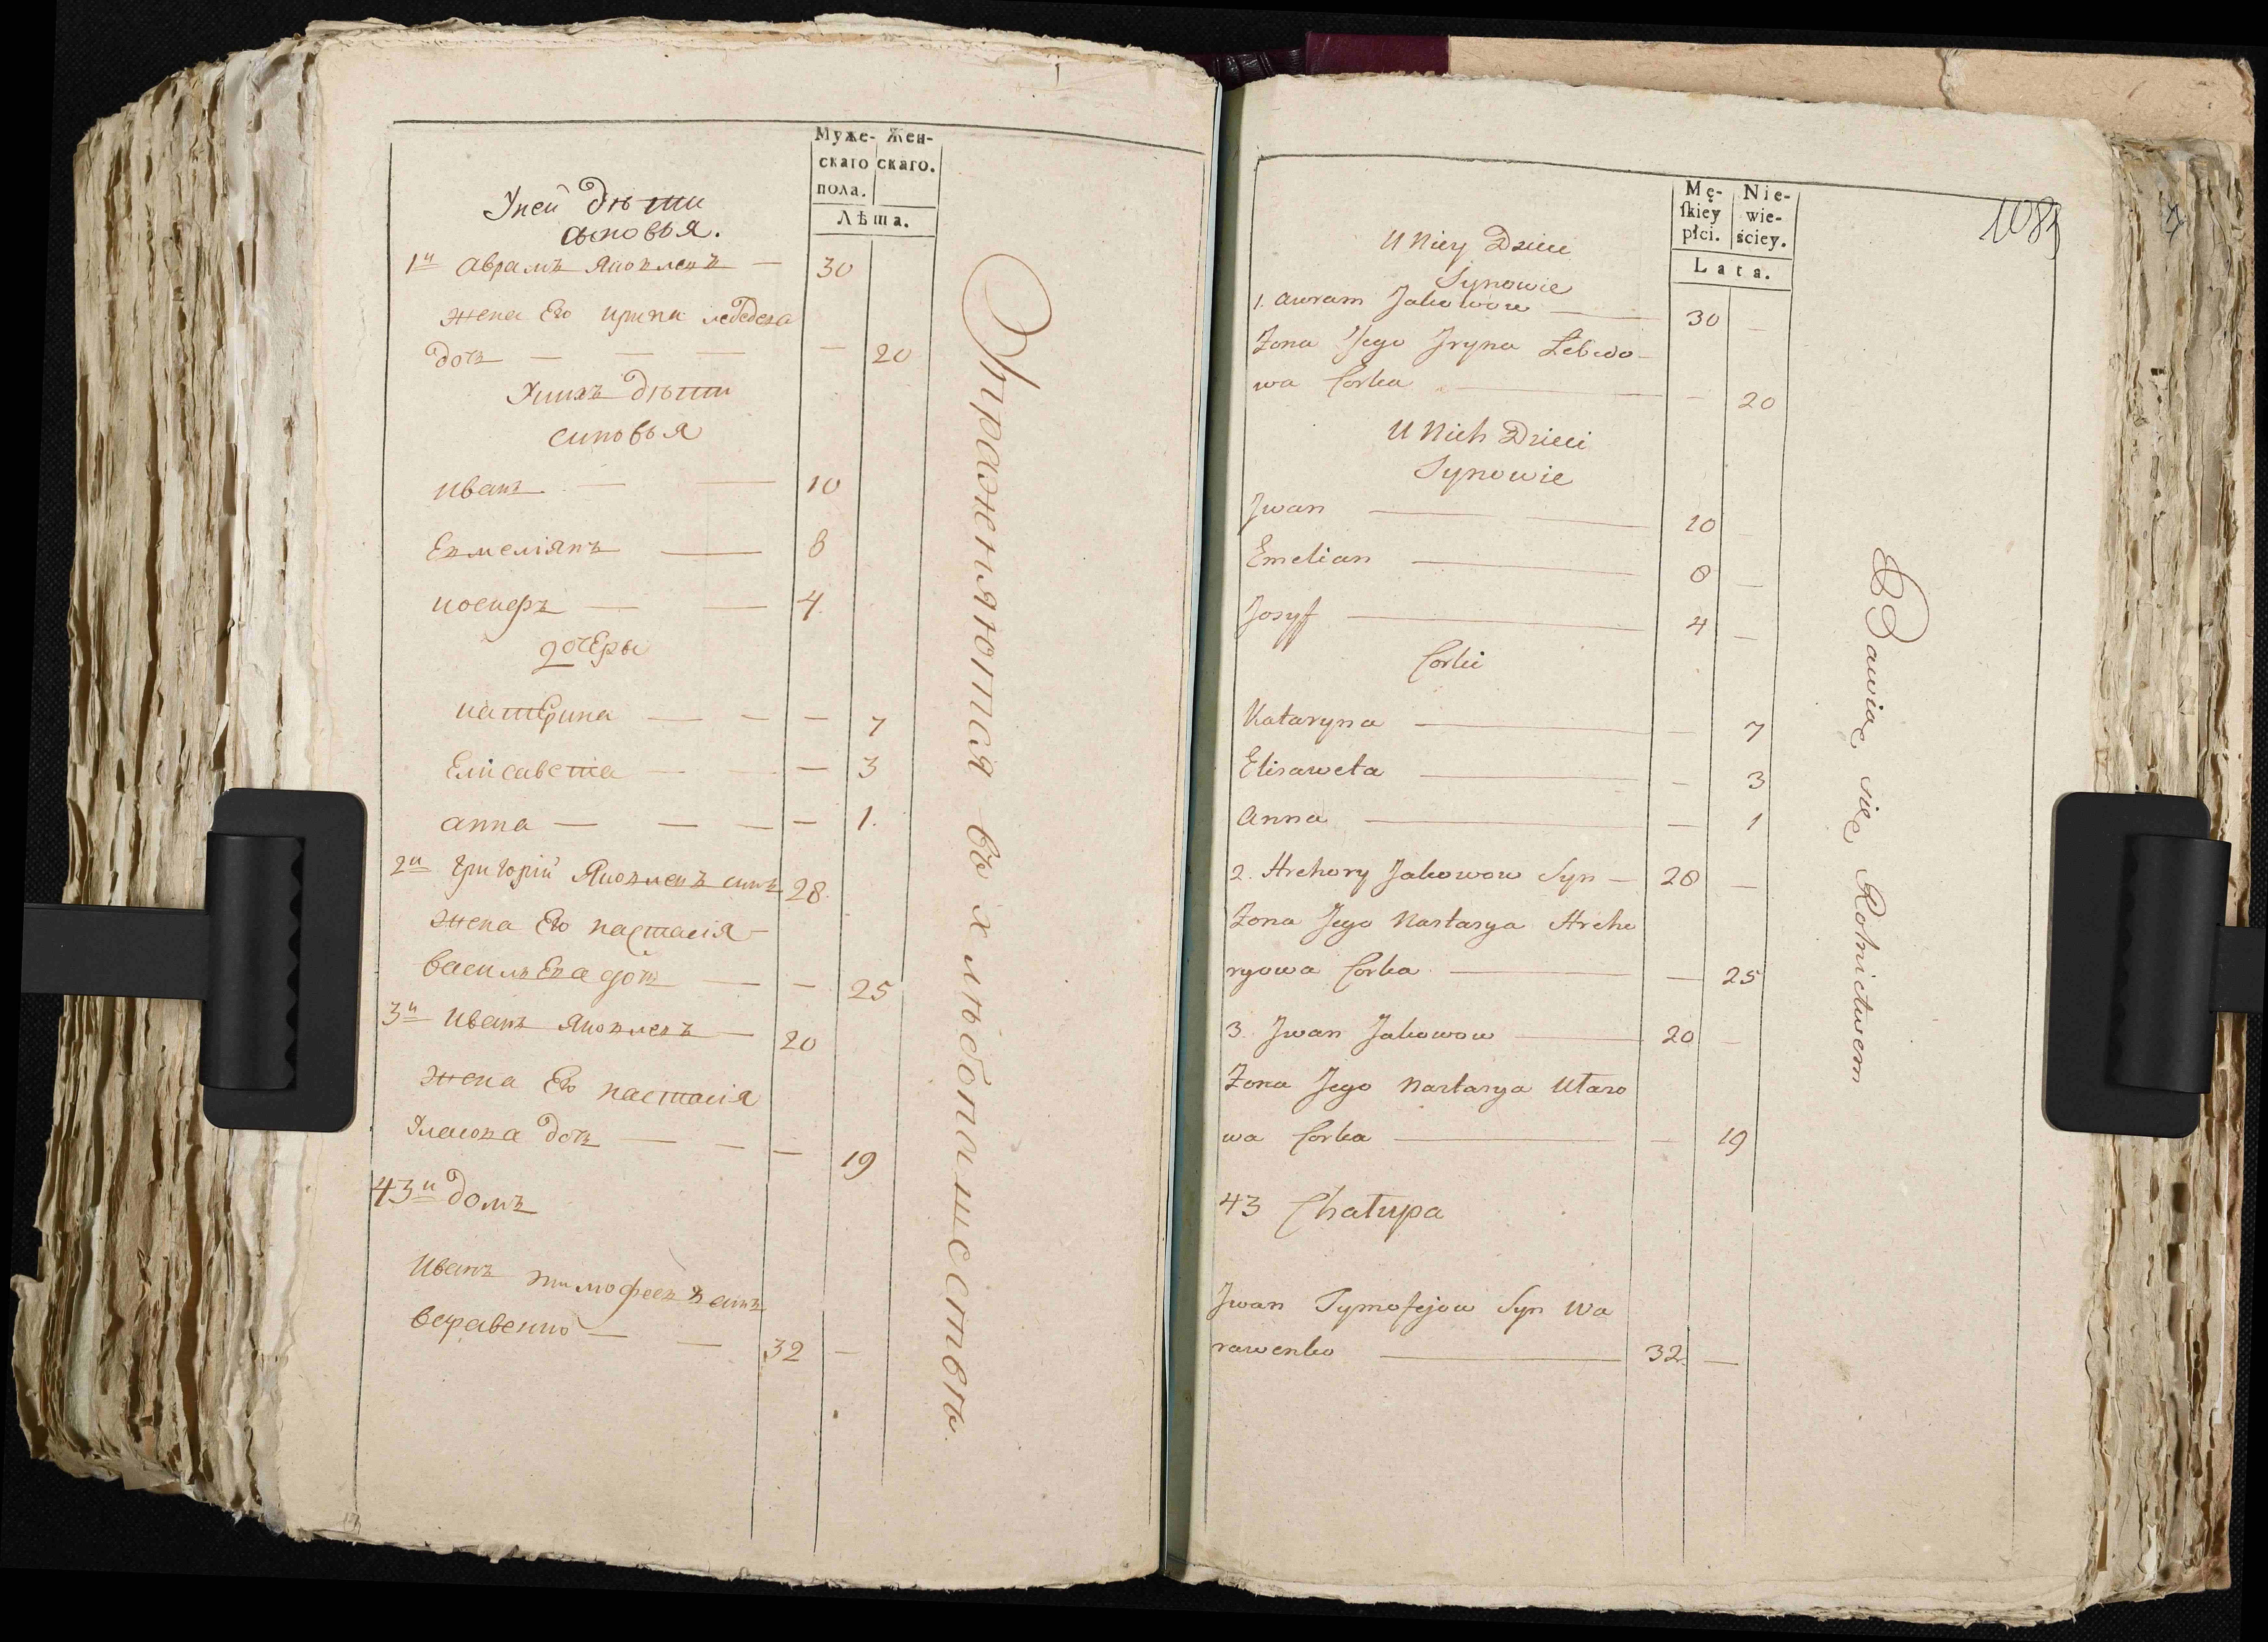 Муже- Жен-
скаго скаго.
пола.
Лѣта.
Уней дѣти
сыновья.
1й аврамъ Яковлевъ — 30
жена Его ирина лебедева
дочь — — — — 20
Унихъ дѣти
синовья
иванъ — — 10
Емелiянъ — 8
иосифъ — — 4.
дочеры
катерина — — — 7
Елисавета — — — 3
анна — — — — 1.
2й Григорiй Яковлевъ синъ 28.
жена Его настасiя
василЕва дочь — — 25
3й иванъ Яковлевъ — 20
жена Его настасiя
Власова дочь — — — 19
43й домъ
иванъ тимофеевъ синъ
веравенко — — 32 —
Упражняются въ хлѣбопашествѣ.
1085
Mę- Nie-
skiey wie-
płci. ściey.
Lata.
U Niey Dzieci
Synowie
1. Awram Jakowow — 30 —
Żona Jego Jryna Lebedo-
wa Corka — — 20
U Nich Dzieci
Synowie
Jwan — 10 —
Emelian — 8 —
Josyf — 4 —
Corki
Kataryna — — 7
Elisaweta — — 3
Anna — — 1
2. Hrehory Jakowow Syn — 28 —
Żona Jego Nastasya Hreho
ryowa Corka — — 25
3. Jwan Jakowow — 20 —
Żona Jego Nastasya Ułaso
wa Corka — — 19
43 Chałupa
Jwan Tymofejow Syn Wa
rawenko — 32. —
Bawią się Rolnictwem